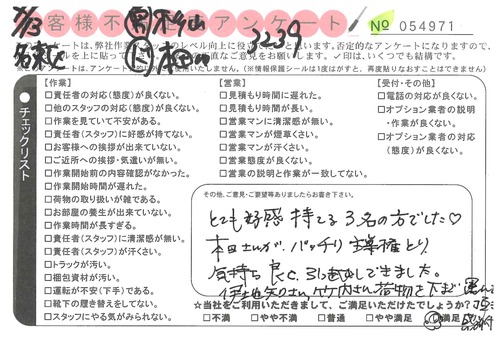 お客様不満アンケート
No 054971
3239
11/13
名東
アンケートは、弊社作業スタッフのレベル向上に役立
否定的なアンケートになりますので、
直なご意見をお願いします。✓印は、いくつでも結構です。
使用いたしません。(※情報保護シールは1度はがすと、再度貼りなおすことはできません)
チェックリスト
【作業】
□責任者の対応(態度)が良くない。
□他のスタッフの対応(態度)が良くない。
□作業を見ていて不安がある。
□責任者(スタッフ)に好感が持てない。
□お客様への挨拶が出来ていない。
□ご近所への挨拶・気遣いが無い。
□作業開始前の内容確認がなかった。
□作業開始時間が遅れた。
□荷物の取り扱いが雑である。
□お部屋の養生が出来ていない。
□作業時間が長すぎる。
□責任者(スタッフ)に清潔感が無い。
□責任者(スタッフ)が汗くさい。
□トラックが汚い。
□梱包資材が汚い。
□運転が不安(下手)である。
□靴下の履き替えをしてない。
□スタッフにやる気がみられない。
【営業】
□見積もり時間に遅れた。
□見積もり時間が長い。
□営業マンに清潔感が無い。
□営業マンが煙草くさい。
□営業マンが汗くさい。
□営業態度が良くない。
□営業の説明と作業が一致してない。
【受付・その他】
□電話の対応が良くない。
□オプション業者の説明
・作業が良くない。
□オプション業者の対応
(態度)が良くない。
その他、ご意見・ご要望等ありましたらお書き下さい。
とても好感 持てる 3名の方でした♡
本田さんが、バッチリ 主導権とり
気持ち 良く、引越しできました。
伊地知さん、竹内さん、荷物を
☆当社をご利用いただきまして、ご満足いただけたでしょうか?
□不満 □やや不満 □普通 □やや満足 満足